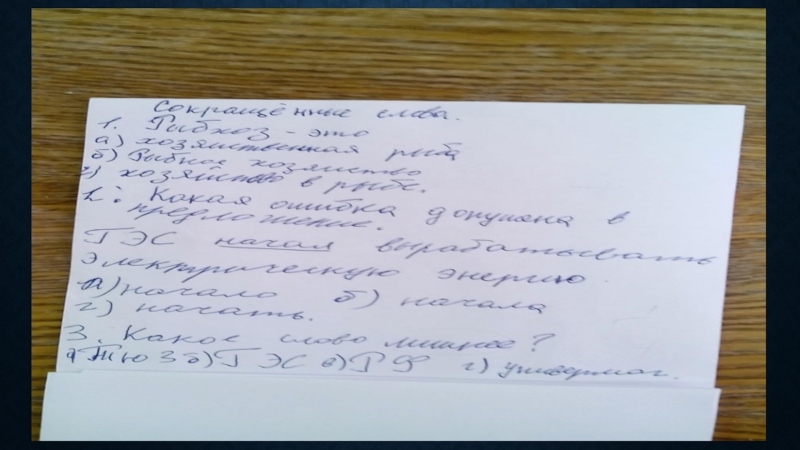 Сокращённые слова.
1. Рыбхоз - это
а) хозяйственная рыба
б) Рыбное хозяйство
г) хозяйство в рыбе.
2. Какая ошибка допущена в
предложение.
ГЭС начал вырабатывать
электрическую энергию.
а) начало б) начала
г) начать.
3. Какое слово лишнее?
а) ТЮЗ б) ГЭС в) РФ г) универмаг.